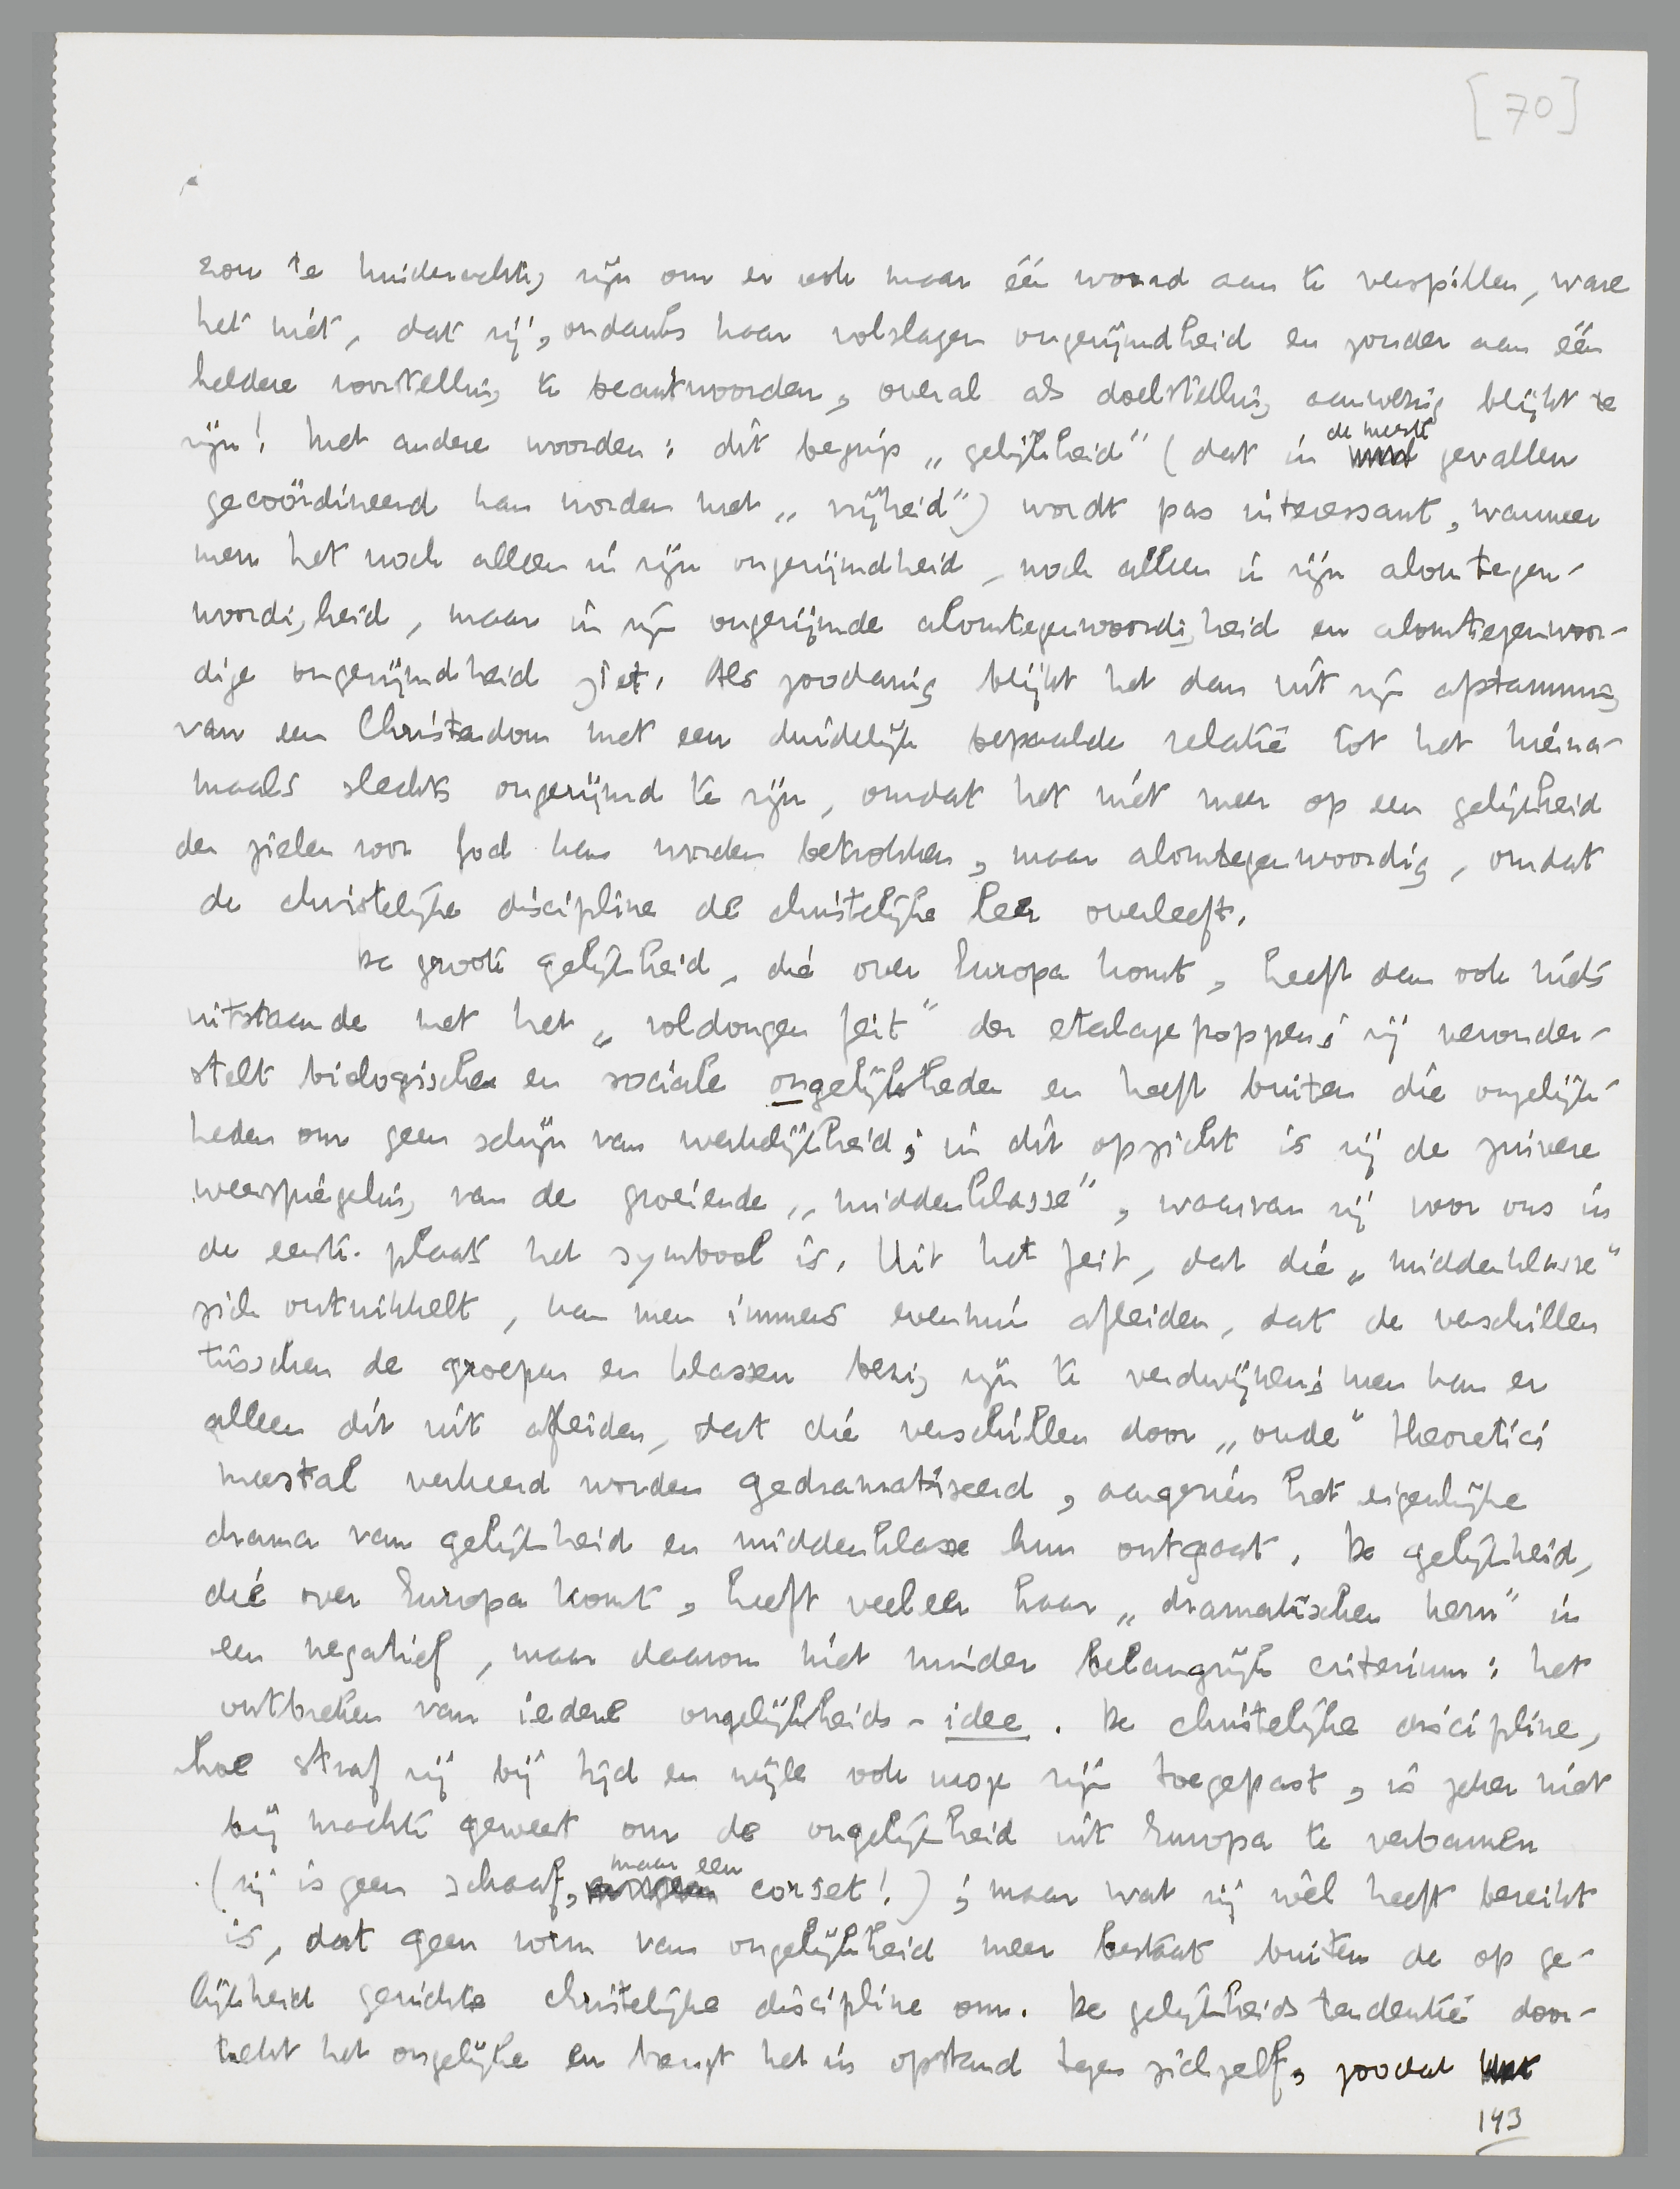 [70]
zou te minderwaardig zijn om er ook maar één woord aan te verspillen, ware
het niet, dat zij, ondanks haar volslagen ongerijmdheid en zonder aan één
heldere voorstelling te beantwoorden, overal als doelstelling aanwezig blijkt te
zijn! Met andere woorden: dit begrip „gelijkheid” (dat in de meeste gevallen
gecoördineerd kan worden met „vrijheid”) wordt pas interessant, wanneer
men het noch alleen in zijn ongerijmdheid, noch alleen in zijn alomtegen-
woordigheid, maar in zijn ongerijmde alomtegenwoordigheid en alomtegenwoor-
dige ongerijmdheid ziet. Als zoodanig blijkt het dan uit zijn afstamming
van een Christendom met een duidelijk bepaalde relatie tot het hierna-
maals slechts ongerijmd te zijn, omdat het niet meer op een gelijkheid
der zielen voor God kan worden betrokken, maar alomtegenwoordig, omdat
de christelijke discipline de christelijke leer overleeft.
De groote gelijkheid, die over Europa komt, heeft dan ook niets
uitstaande met het „voldongen feit” der etalagepoppen; zij veronder-
stelt biologische en sociale ongelijkheden en heeft buiten die ongelijk-
heden om geen schijn van werkelijkheid; in dit opzicht is zij de zuivere
weerspiegeling van de groeiende „middenklasse”, waarvan zij voor ons in
de eerste plaats het symbool is. Uit het feit, dat die „middenklasse”
zich ontwikkelt, kan men immers evenmin afleiden, dat de verschillen
tusschen de groepen en klassen bezig zijn te verdwijnen; men kan er
alleen dit uit afleiden, dat die verschillen door „oude” theoretici
meestal verkeerd worden gedramatiseerd, aangezien het eigenlijke
drama van gelijkheid en middenklasse hun ontgaat. De gelijkheid,
die over Europa komt, heeft veeleer haar „dramatischen kern” in
een negatief, maar daarom niet minder belangrijk criterium: het
ontbreken van iedere ongelijkheids-idee. De christelijke discipline,
hoe straf zij bij tijd en wijle ook moge zijn toegepast, is zeker niet
bij machte geweest om de ongelijkheid uit Europa te verbannen
(zij is geen schaaf, maar een corset!); maar wat zij wèl heeft bereikt
is, dat geen vorm van ongelijkheid meer bestaat buiten de op ge-
lijkheid gerichte christelijke discipline om. De gelijkheidstendentie door-
trekt het ongelijke en brengt het in opstand tegen zichzelf, zoodat
143